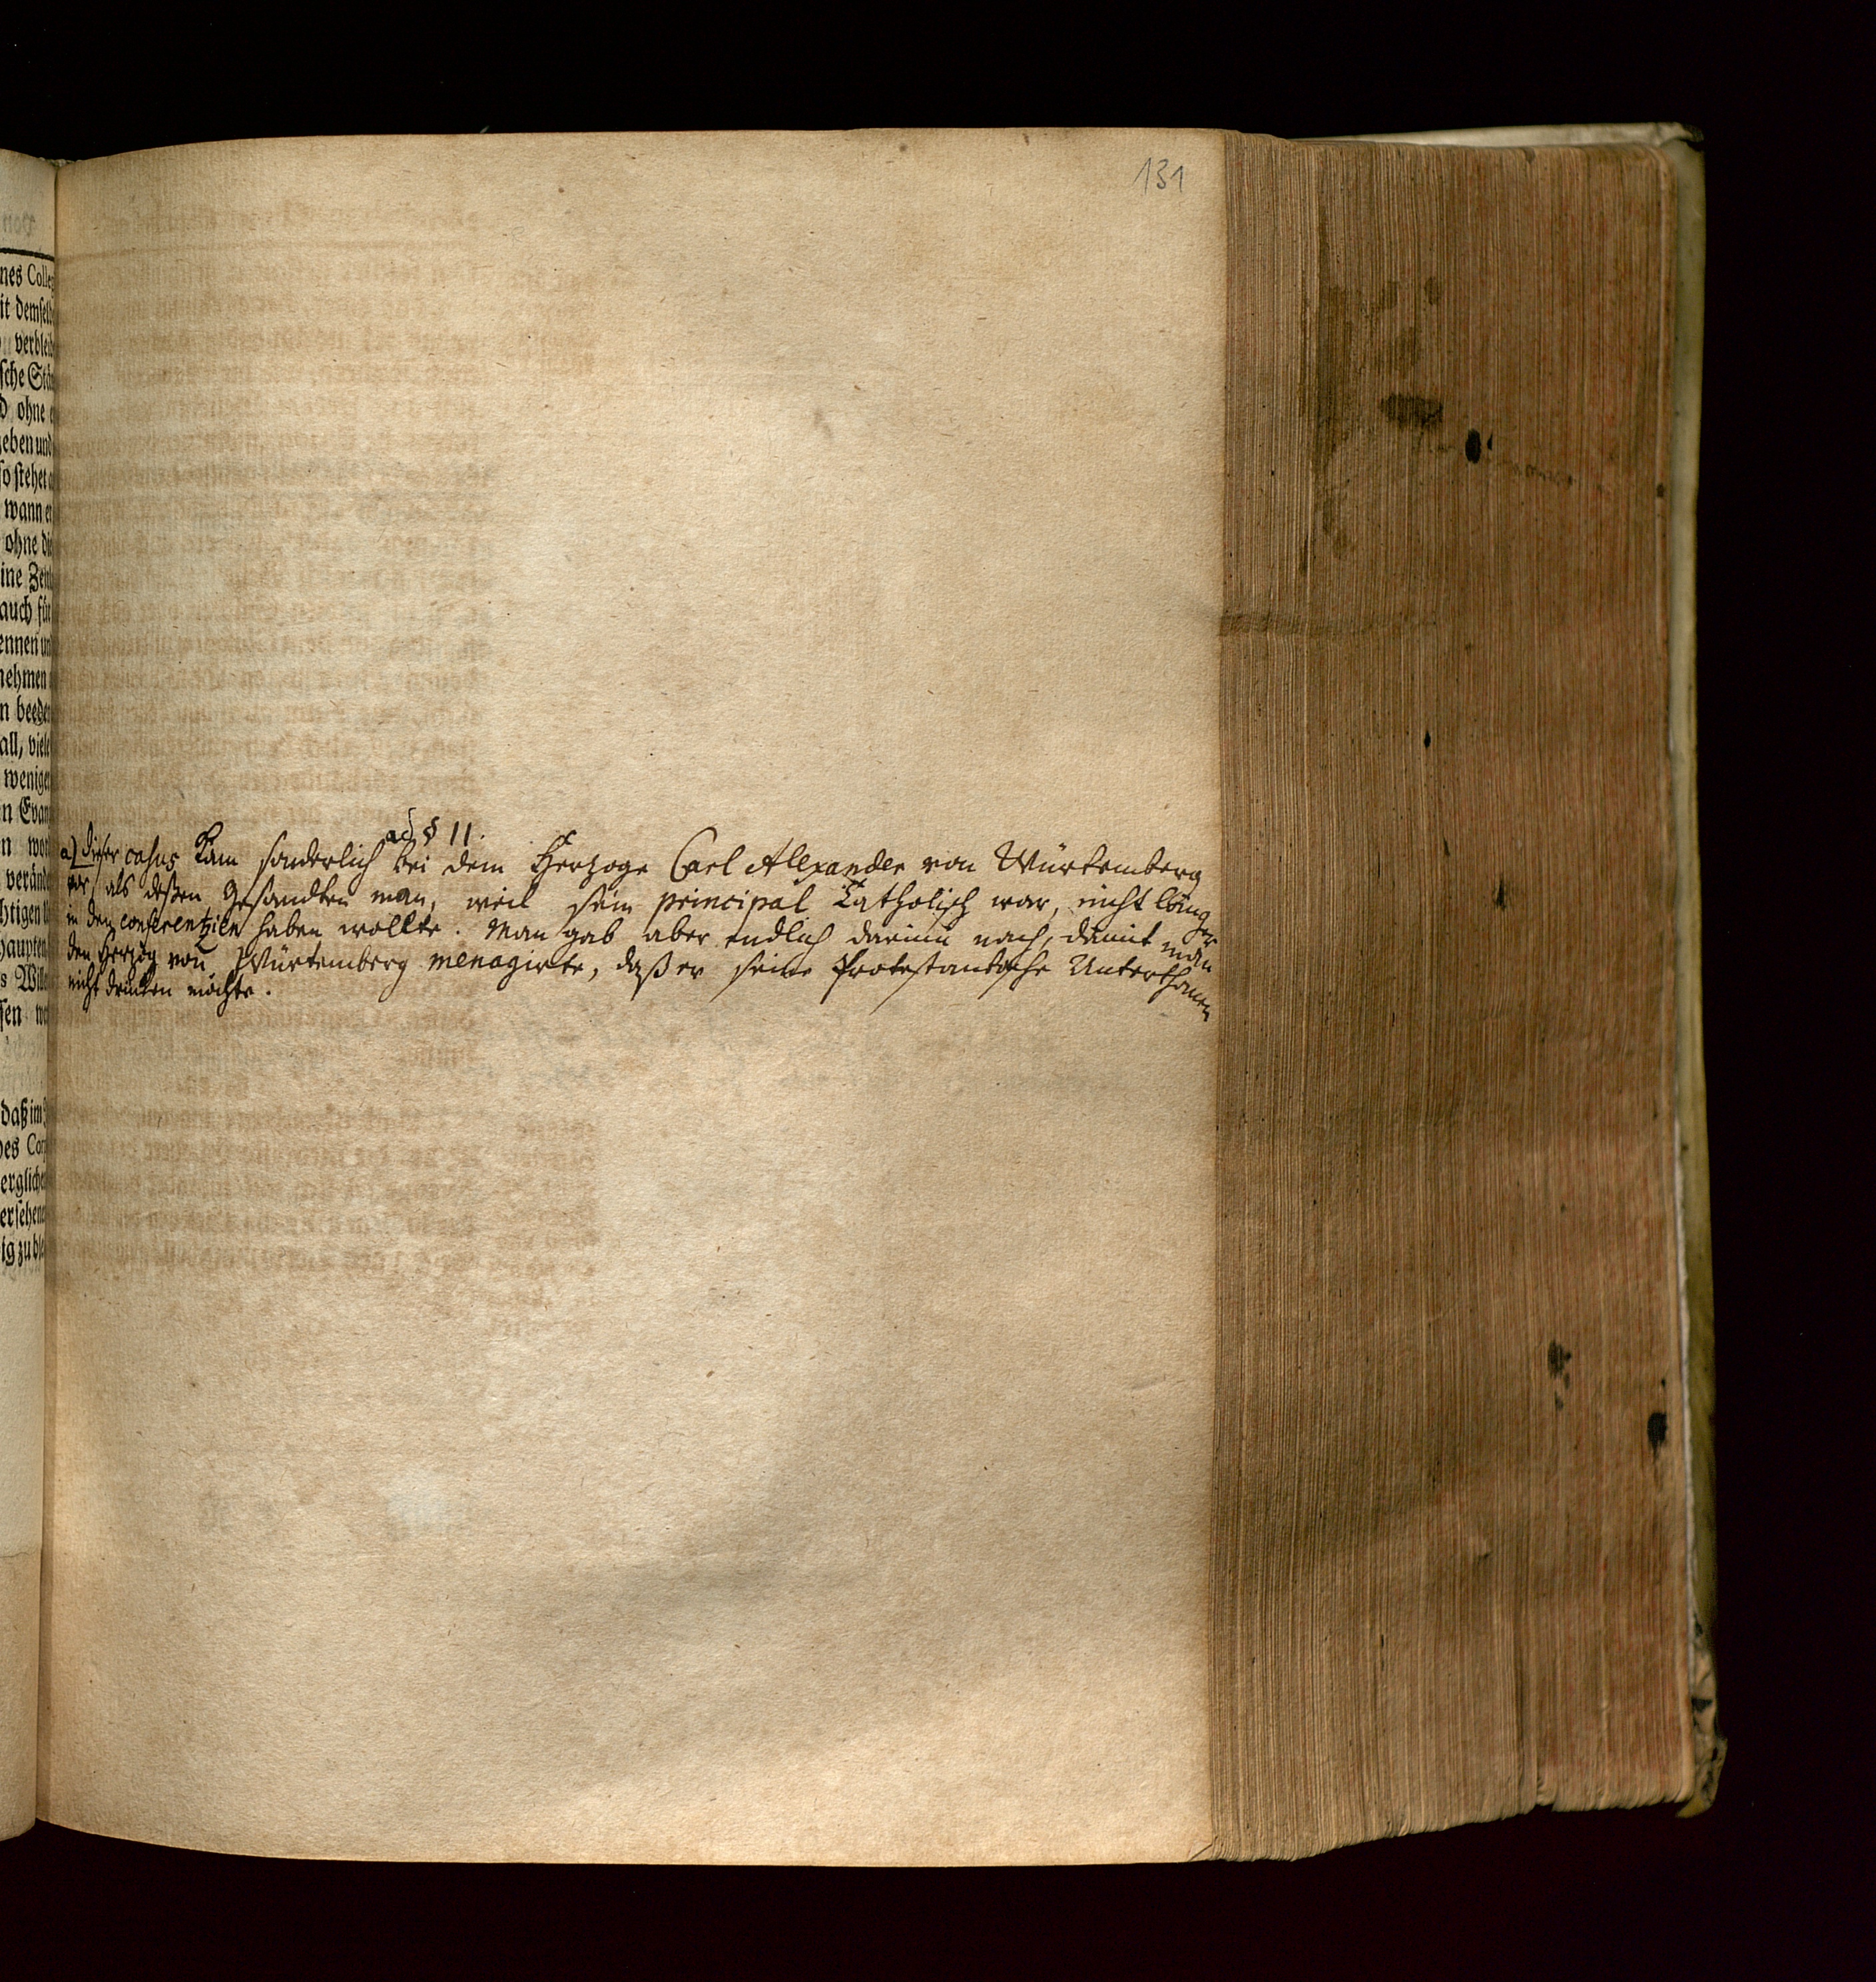 131
nes Colle
it demselb
verblei
sche Stän
d ohne e
geben und
so stehet
wann er
ohne di
ine Zeit
auch für
ennen un
nehmen
n beeden
all, viele
wenige
n Evan
n wor
verände
htigen
haupten
s Wille
sen we
daß im
hes Cor
erglichen
ersehen
ig zu ble
ad § 11.
a) Dieser casus kam sonderlich bei dem Herzoge Carl Alexander von Würtemberg
vor, als deßen Gesandten man, weil sein principal Catholisch war, nicht länger
in den conferentzien haben wollte. Man gab aber endlich darinn nach, damit man
den Herzog von Würtemberg menagirte, daß er seine Protestantische Unterthanen
nicht drücken möchte.